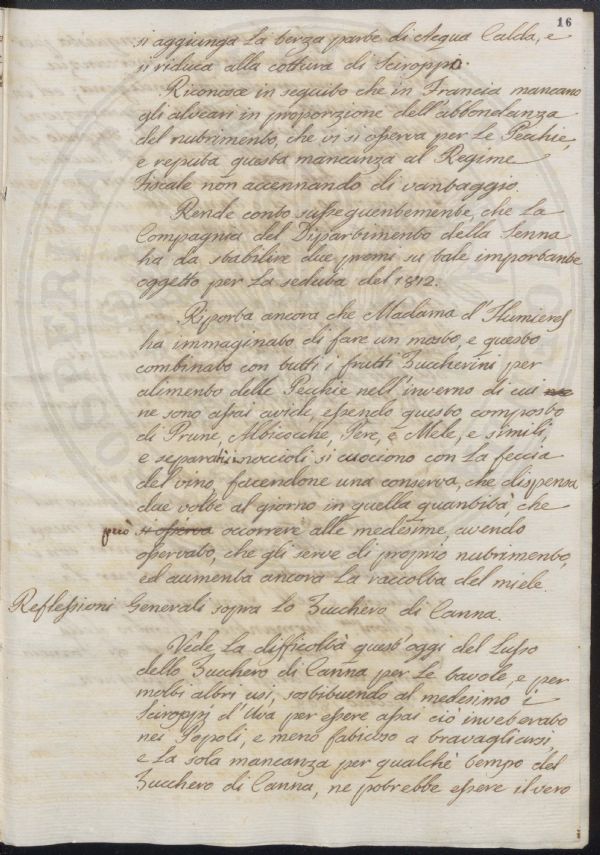 16
si aggiunga la terza parte di Acqua Calda, e
si riduca alla cottura di Sciroppo.
Riconosce in seguito che in Francia mancano
gli alveari in proporzione dell'abbondanza
del nutrimento, che vi si osserva per le Pecchie,
e reputa questa mancanza al Regime
Fiscale non accennando di vantaggio.
Rende conto sussequentemente, che la
Compagnia del Dipartimento della Senna
ha da stabilire due premi su tale importante
oggetto per la seduta del 1812.
Riporta ancora che Madama d'Humieres
ha immaginato di fare un mosto, e questo
combinato con tutti i frutti Zuccherini per
alimento delle Pecchie nell'inverno di cui
ne sono assai avide, essendo questo composto
di Prune, Albicocche, Pere, e Mele, e simili,
e separati i noccioli si cuociono con la feccia
del vino, facendone una conserva, che dispensa
due volte al giorno in quella quantità, che
può si osserva occorrere alle medesime, avendo
osservato, che gli serve di proprio nutrimento,
ed aumenta ancora la raccolta del miele.
Reflessioni Generali sopra lo Zucchero di Canna.
Vede la difficoltà quest'oggi del Lusso
dello Zucchero di Canna per le tavole, e per
molti altri usi, sostituendo al medesimo i
Sciroppi d'Uva per essere assai ciò inveterato
nei Popoli, e meno faticoso a travagliarsi,
e la sola mancanza per qualche tempo del
Zucchero di Canna, ne potrebbe essere il vero